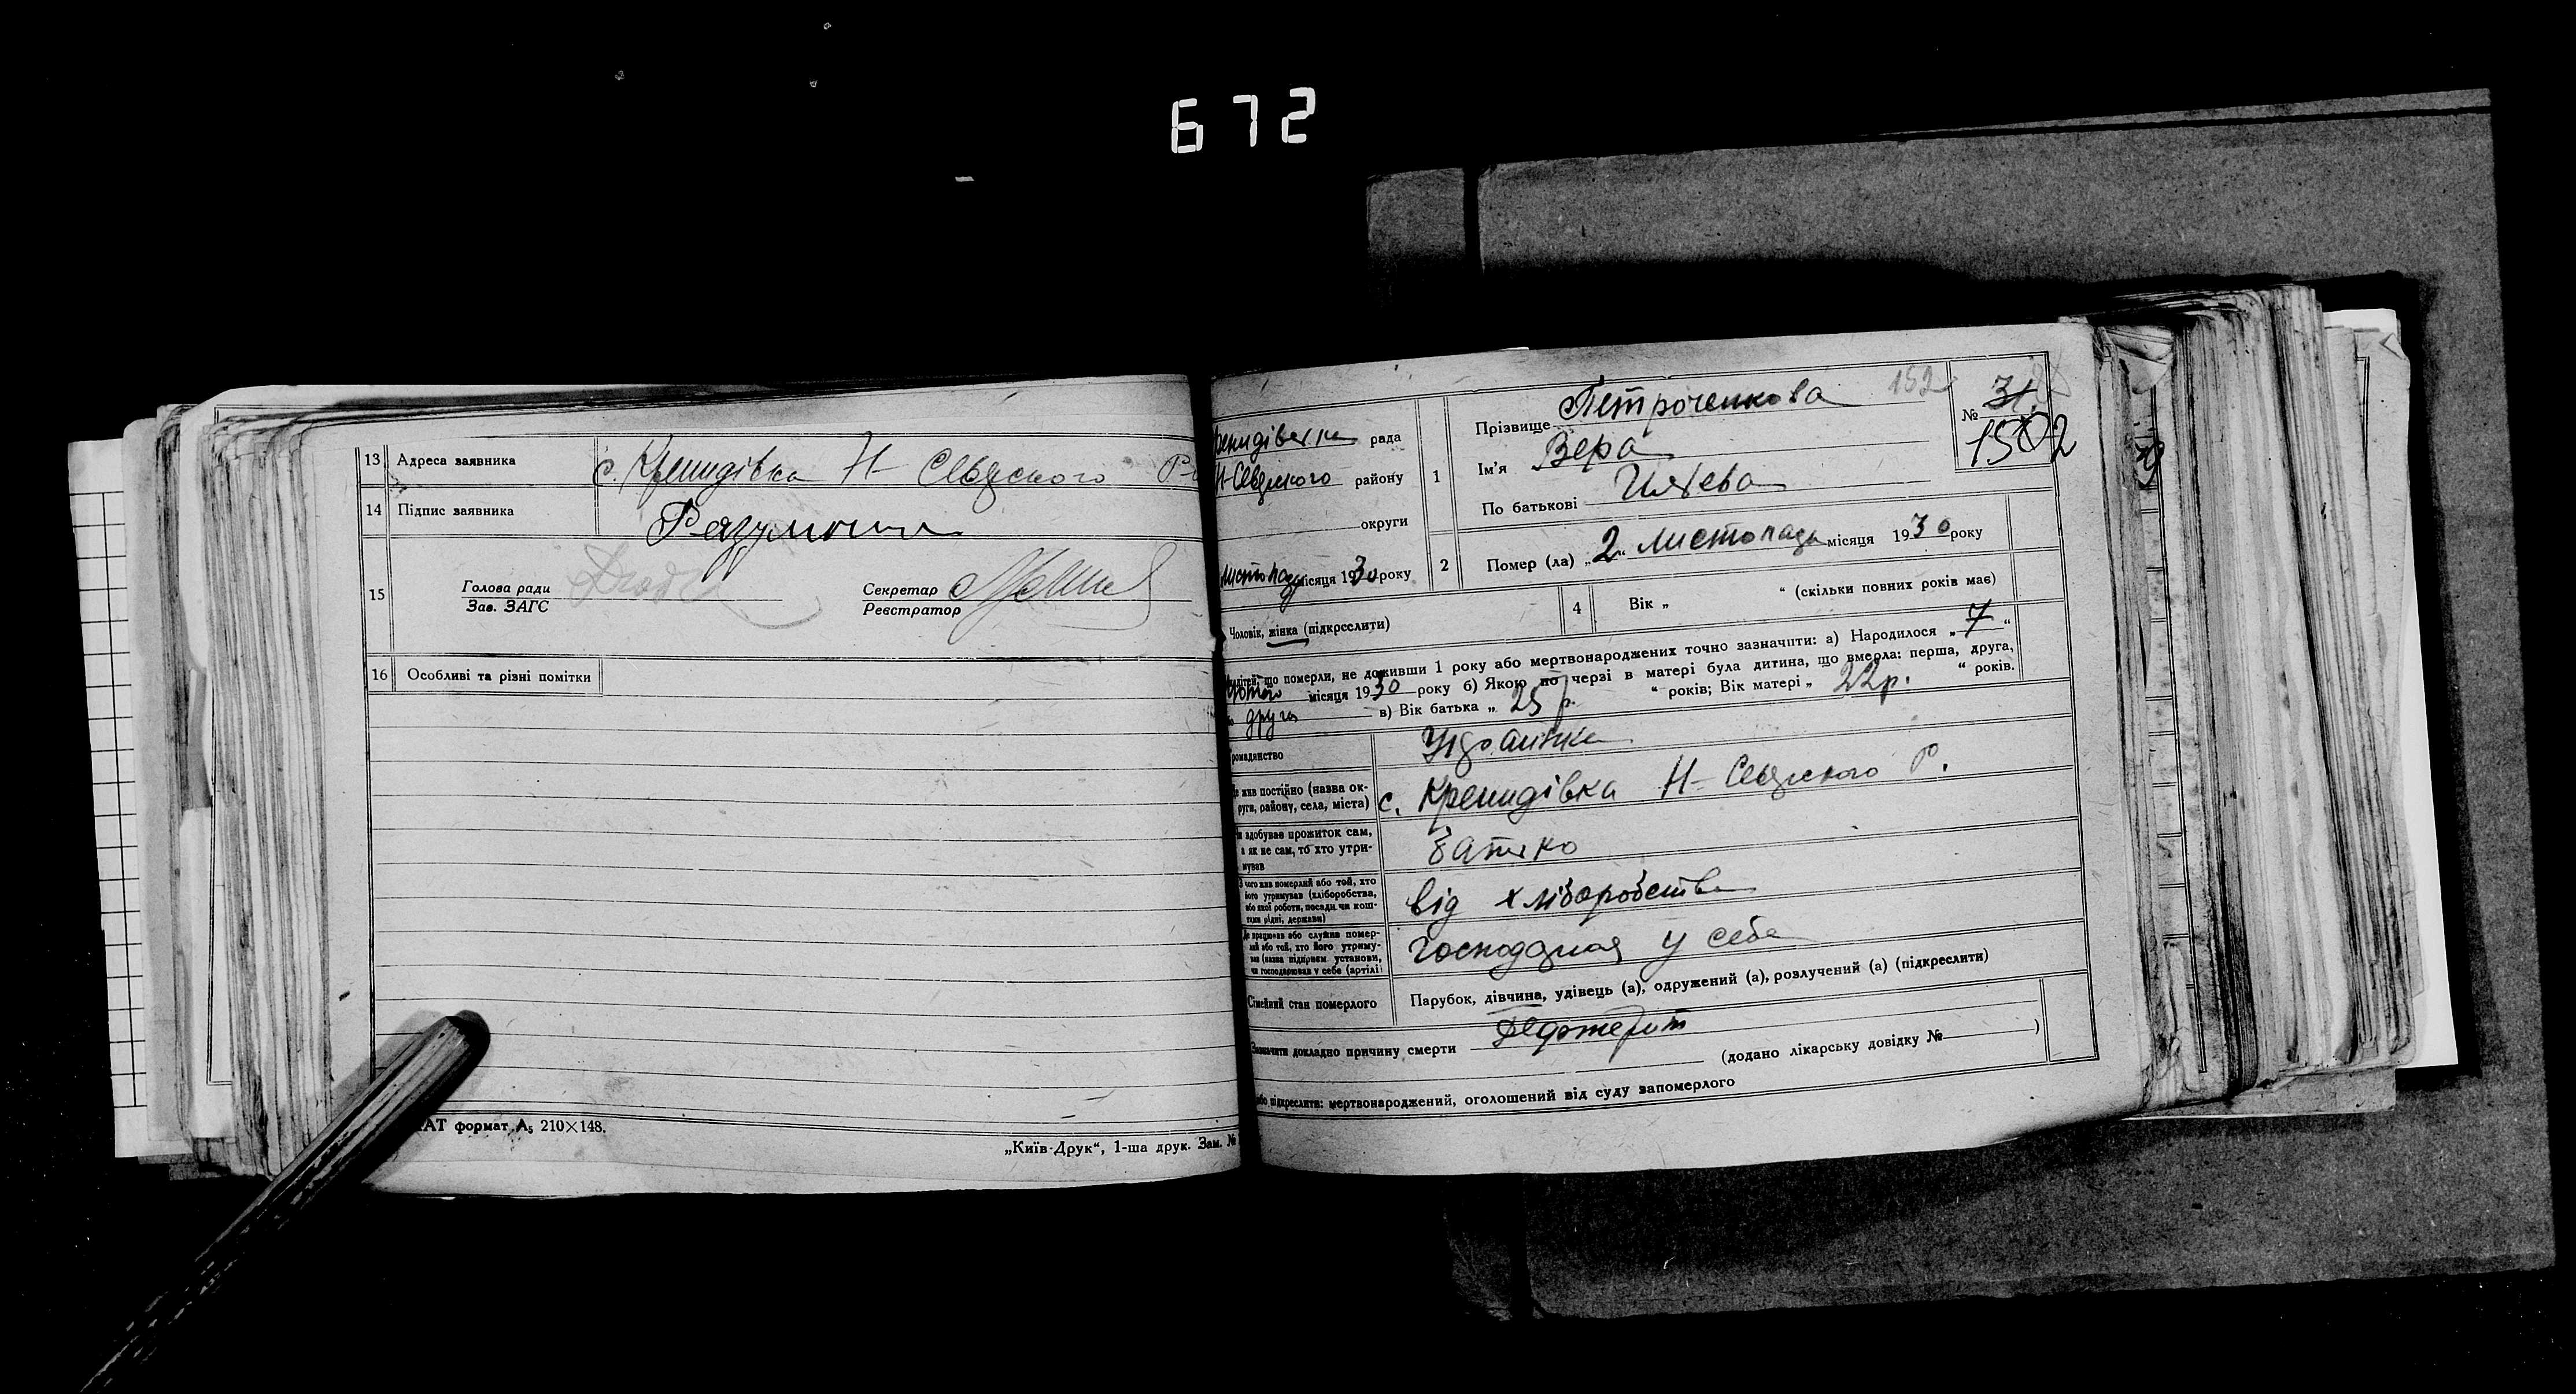 672
13 Адреса заявника с. Кренидівка Н-Сіверского
14 Підпис заявника
15 Голова ради
Зав. ЗАГС
Секретар
Реєстратор
16 Особливі та різні помітки
формат А₅ 210×148.
„Київ-Друк“, 1-ша друк. Зам. №
рада
району
округи
Листопад місяця 1930 року
1 Прізвище Петроченкова 152
Ім'я Вера
По батькові
№ 31
1502
2 Помер (ла) „2“ Листопада місяця 1930 року
Чоловік, жінка (підкреслити)
4 Вік „ “ (скільки повних років має)
дітей, що померли, не доживши 1 року або мертвонароджених точно зазначити: а) Народилося „7“
місяця 1930 року б) Якою по черзі в матері була дитина, що вмерла: перша, друга,
друга в) Вік батька „25 р. “ років; Вік матері „22 р. “ років.
громадянство Українка
де жив постійно (назва ок-
руги, району, села, міста) с. Кренидівка Н-Сіверского Р.
здобував прожиток сам,
а як не сам, то хто утри-
мував батько
З чого жив померлий або той, хто
його утримував (хліборобства,
або якої роботи, посади чи кош-
тами рідні, держави) від хліборобства
Де працював або служив помер-
лий або той, хто його утриму-
вав (назва підприєм. установи,
чи господарював у себе (артілі) господарюя у себе
Сімейний стан померлого Парубок, дівчина, удівець (а), одружений (а), розлучений (а) (підкреслити)
Зазначити докладно причину смерти Дефтерит
(додано лікарську довідку № )
або підкреслити: мертвонароджений, оголошений від суду запомерлого